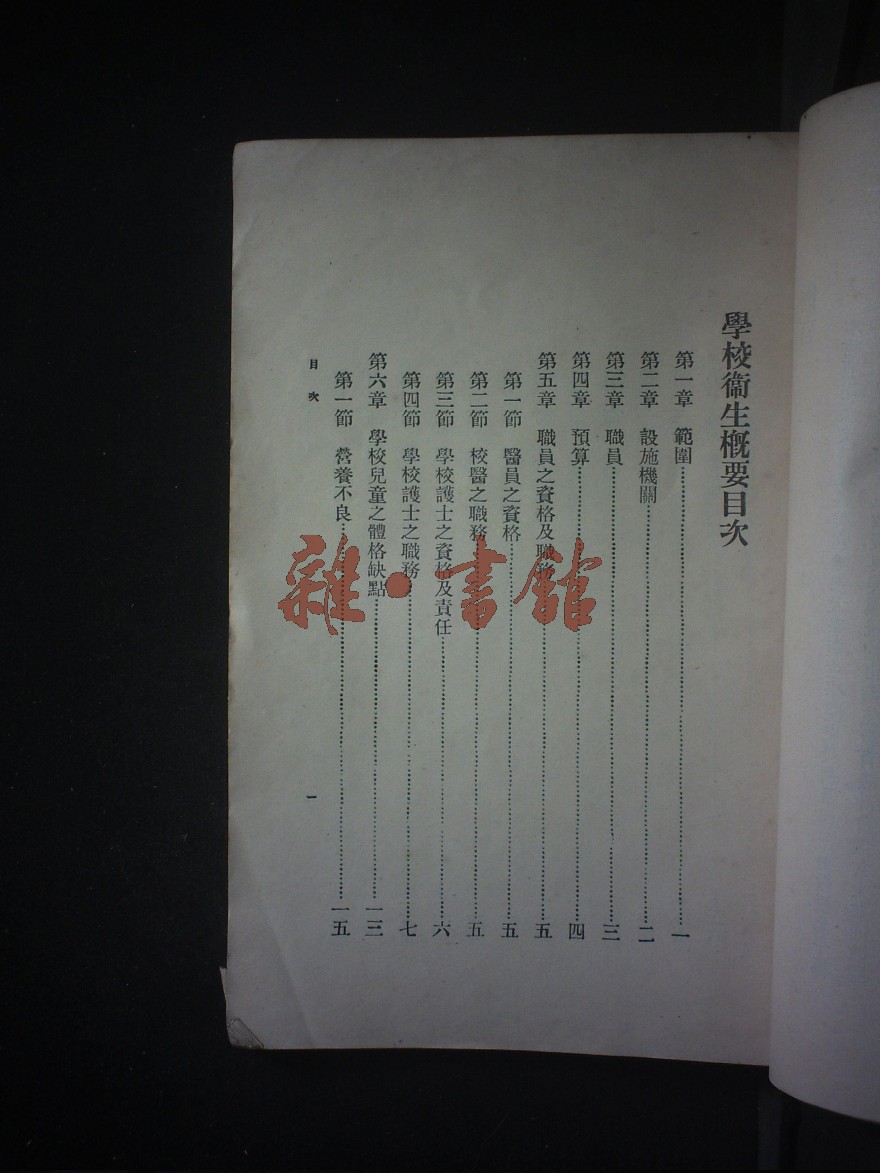 學校衞生概要目次
第一章 範圍………一
第二章 設施機關………二
第三章 職員………三
第四章 預算………四
第五章 職員之資格及職務………五
第一節 醫員之資格………五
第二節 校醫之職務………五
第三節 學校護士之資格及責任………六
第四節 學校護士之職務………七
第六章 學校兒童之體格缺點………一三
第一節 營養不良………一五
目次
一
雜·書館